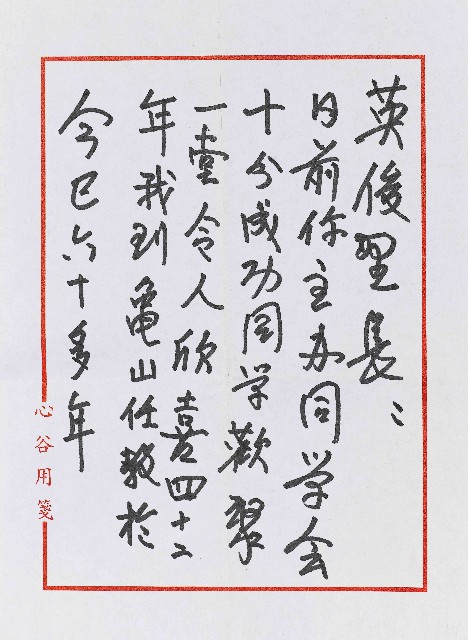 英俊里長：
日前你主办同学会
十分成功同学歡聚
一堂令人欣喜四十二
年我到亀山任教於
今已六十多年
心谷用箋